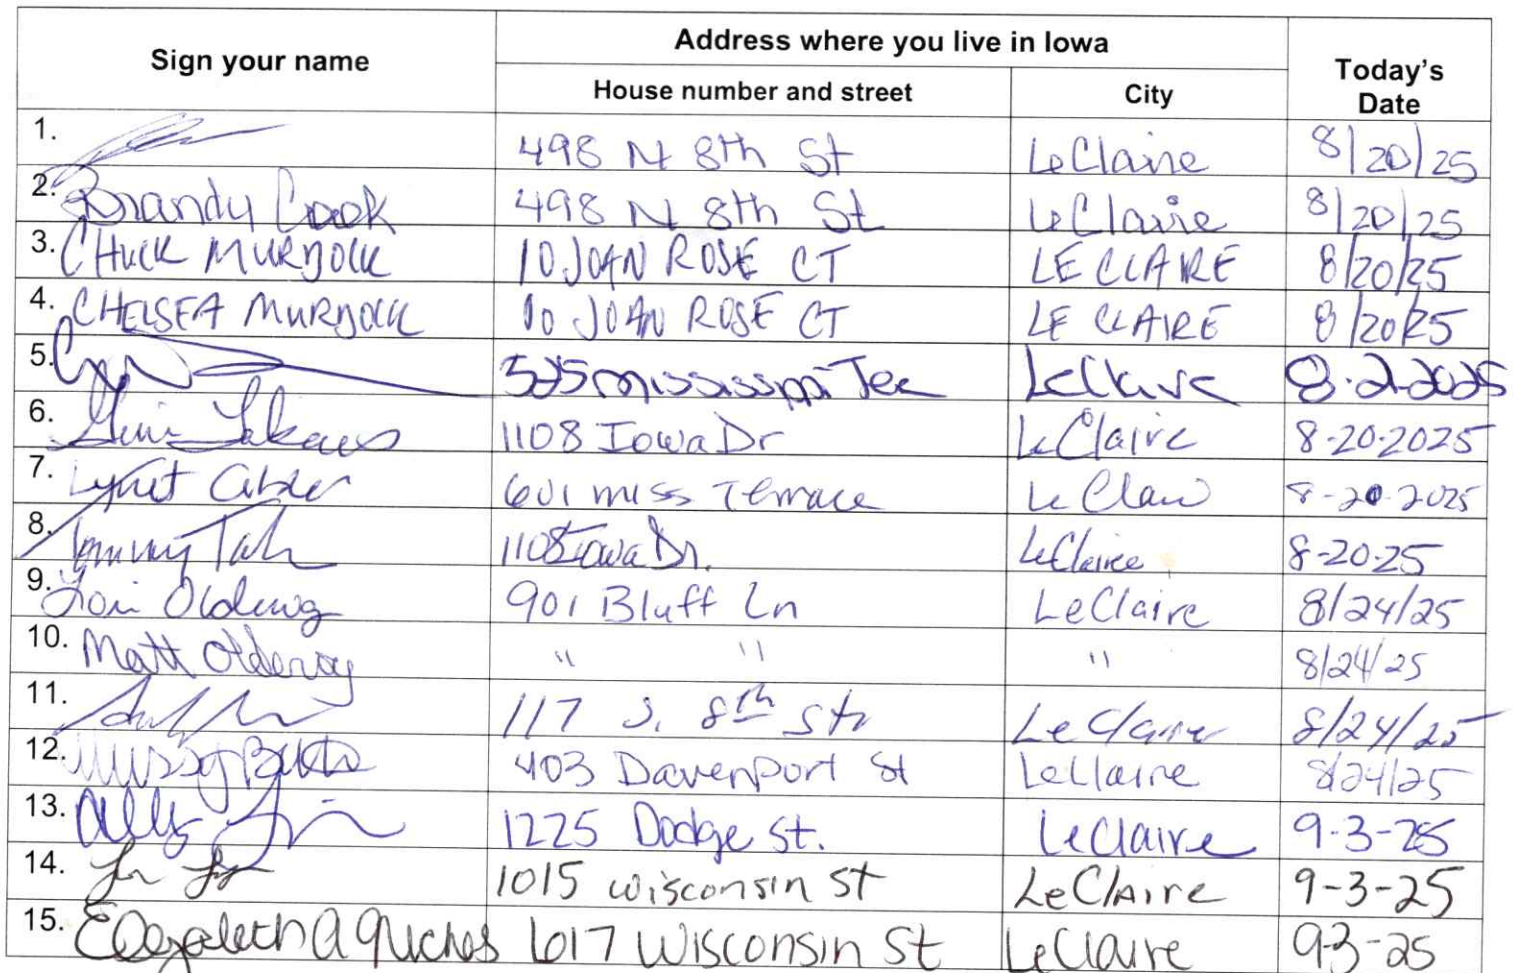 Sign your name
Address where you live in Iowa
House number and street
City
Today's Date
1. 498 N 8th St LeClaire 8/20/25
2. Brandy Cook 498 N 8th St LeClaire 8/20/25
3. CHUCK MURDOCK 10 JOAN ROSE CT LE CLAIRE 8/20/25
4. CHELSEA MURDOCK 10 JOAN ROSE CT LE CLAIRE 8/20/25
5. 525 mississippi Ter LeClaire 8-2-2025
6. 1108 Iowa Dr LeClaire 8-20-2025
7. 601 miss Terrace Le Claire 8-20-2025
8. Tammy 1108 Iowa Dr. LeClaire 8-20-25
9. Lori 901 Bluff Ln LeClaire 8/24/25
10. Matt " " " 8/24/25
11. 117 S. 8th str LeClaire 8/24/25
12. Missy 403 Davenport St LeClaire 8/24/25
13. 1225 Dodge St. LeClaire 9-3-25
14. 1015 wisconsin St LeClaire 9-3-25
15. Elizabeth A 617 Wisconsin St LeClaire 9-3-25